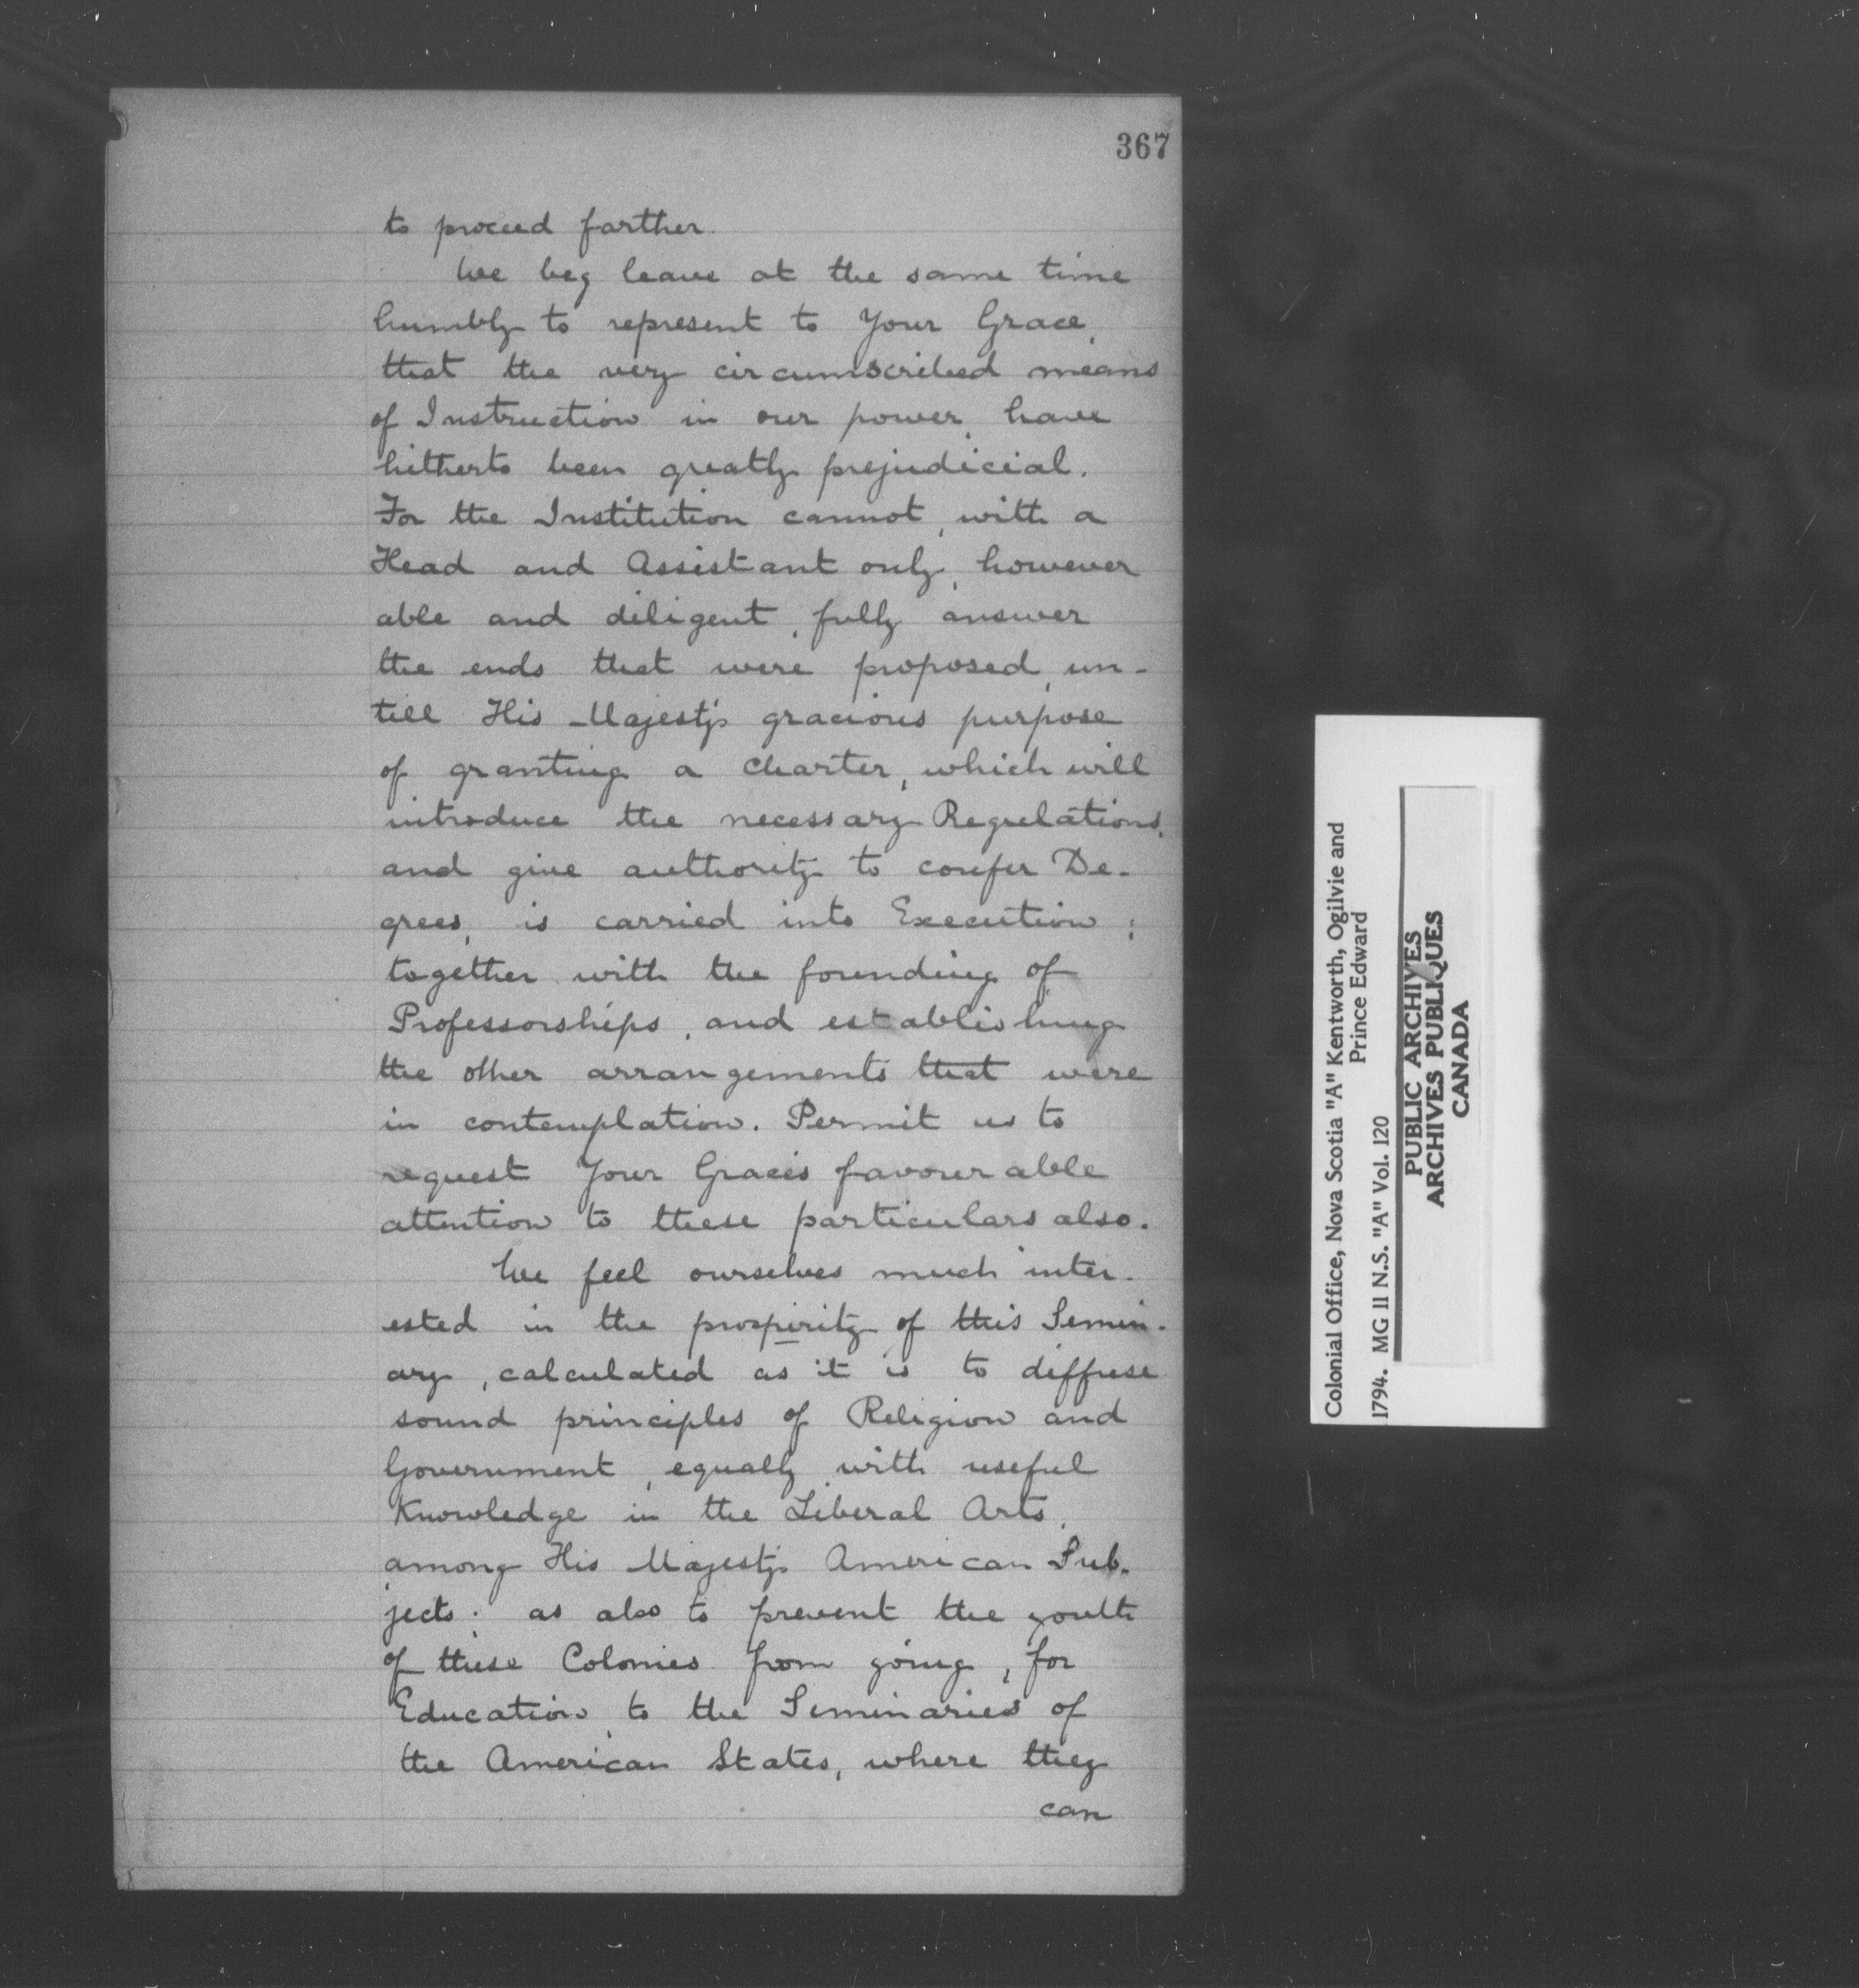 367
to proceed farther.
We beg leave at the same time
humbly to represent to Your Grace,
that the very circumscribed means
of Instruction in our power, have
hitherto been greatly prejudicial.
For the Institution cannot, with a
Head and Assistant only, however
able and diligent, fully answer
the ends that were proposed, un-
till His Majesty's gracious purpose
of granting a Charter, which will
introduce the necessary Regulations,
and give authority to confer De-
grees, is carried into Execution;
together with the founding of
Professorships, and establishing
the other arrangements that were
in contemplation. Permit us to
request Your Grace's favourable
attention to these particulars also.
We feel ourselves much inter-
ested in the prosperity of this Semin-
ary, calculated as it is to diffuse
sound principles of Religion and
Government, equally with useful
Knowledge in the Liberal Arts,
among His Majesty's American Sub-
jects; as also to prevent the youth
of these Colonies from going, for
Education, to the Seminaries of
the American States, where they
can
Colonial Office, Nova Scotia "A" Kentworth, Ogilvie and
Prince Edward
1794. MG 11 N.S. "A" Vol. 120
PUBLIC ARCHIVES
ARCHIVES PUBLIQUES
CANADA